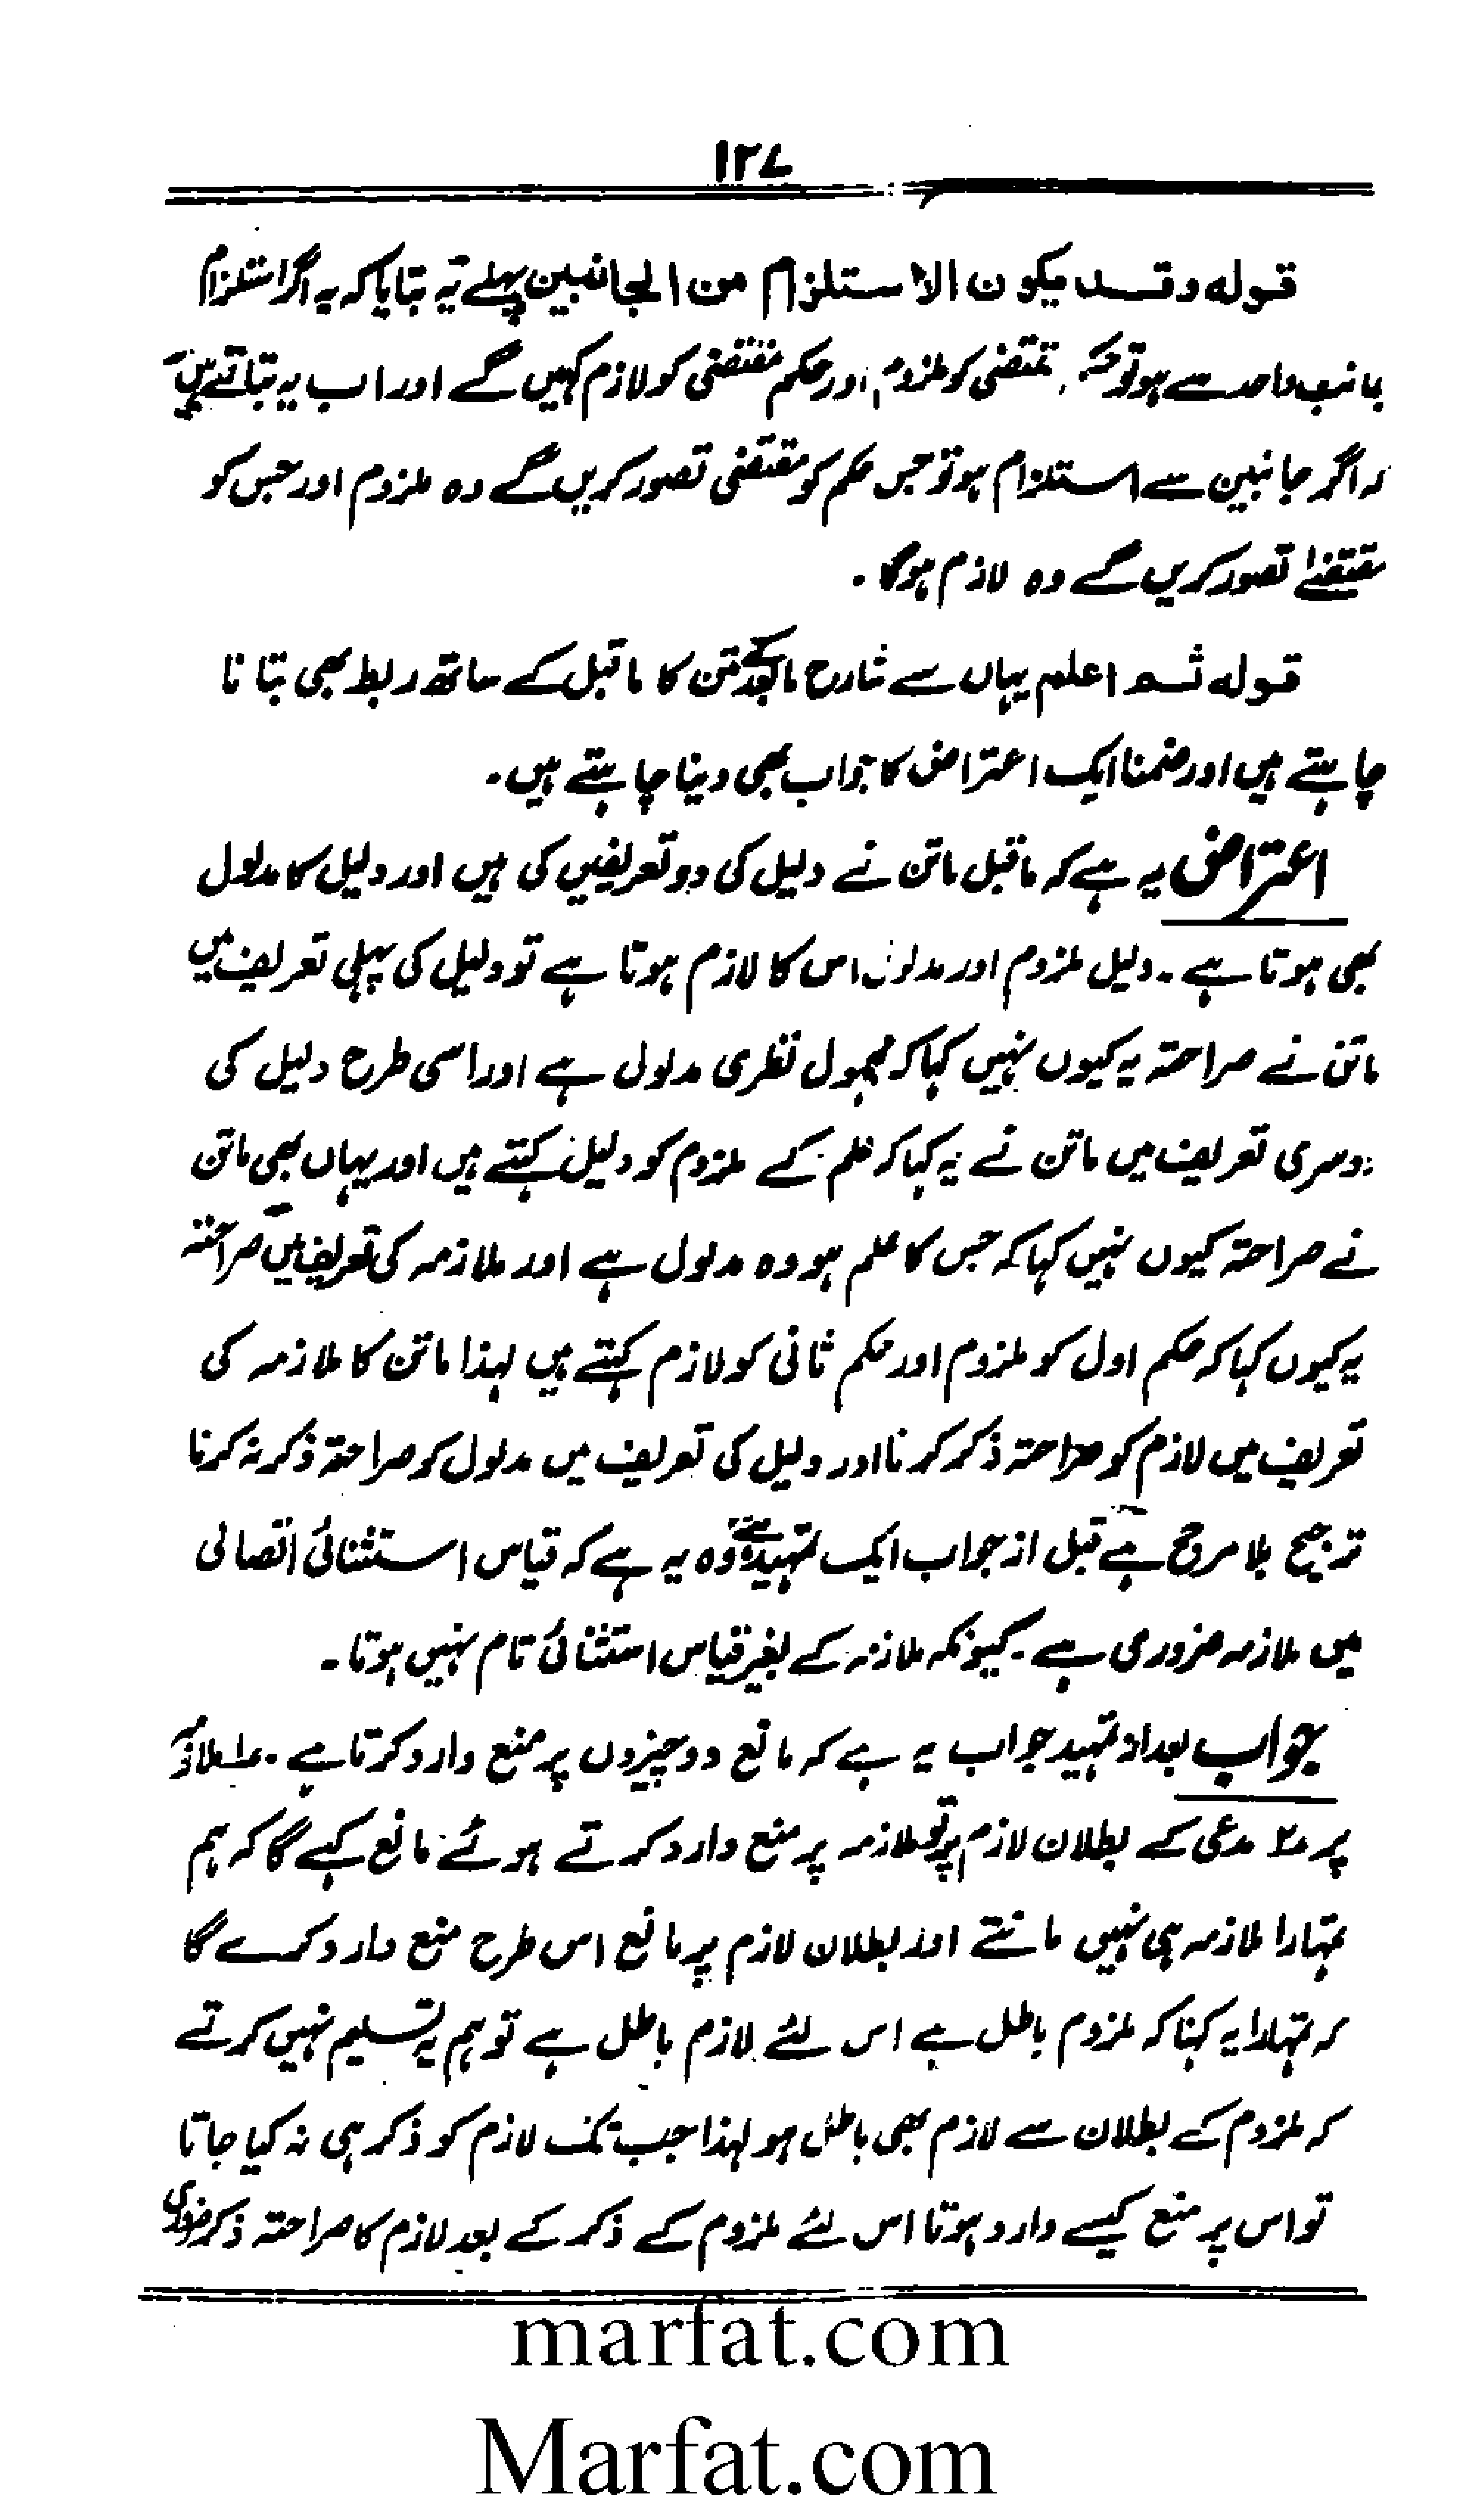 ۱۲۷
قولہ وقد یکون الاستلزام من الجانبین پہلے یہ بتایا کہ یہ اگر استلزام
جانب واحد سے ہو تو حکم مقتضی کو ملزوم اور حکم مقتضیٰ کو لازم کہیں گے اور اب یہ بتاتے ہیں
کہ اگر جانبین سے استلزام ہو تو جس حکم کو مقتضی تصور کریں گے وہ ملزوم اور جس کو
مقتضےٰ تصور کریں گے وہ لازم ہوگا۔
قولہ ثم اعلم یہاں سے شارح مابعد متن کا ماقبل کے ساتھ ربط بھی بتانا
چاہتے ہیں اور ضمنا ایک اعتراض کا جواب بھی دینا چاہتے ہیں۔
اعتراض یہ ہے کہ ماقبل ماتن نے دلیل کی دو تعریفیں کی ہیں اور دلیل کا مدلول
بھی ہوتا ہے۔ دلیل ملزوم اور مدلول اس کا لازم ہوتا ہے تو دلیل کی پہلی تعریف میں
ماتن نے صراحتہ یہ کیوں نہیں کہا کہ مجہول نظری مدلول ہے اور اسی طرح دلیل کی
دوسری تعریف میں ماتن نے یہ کہا کہ علم کے ملزوم کو دلیل کہتے ہیں اور یہاں بھی ماتن
نے صراحتہ کیوں نہیں کہا کہ جس کا علم ہو وہ مدلول ہے اور ملازمہ کی تعریف میں صراحتہ
یہ کیوں کہا کہ حکم اول کو ملزوم اور حکم ثانی کو لازم کہتے ہیں لہذا ماتن کا ملازمہ کی
تعریف میں لازم کو صراحتہ ذکر کرنا اور دلیل کی تعریف میں مدلول کو صراحتہ ذکر نہ کرنا
ترجیح بلا مرجح ہے قبل از جواب ایک تمہید ہے وہ یہ ہے کہ قیاس استثنائی اتصالی
میں ملازمہ ضروری ہے۔ کیونکہ ملازمہ کے بغیر قیاس استثنائی تام نہیں ہوتا۔
جواب بعد از تمہید جواب یہ ہے کہ مانع دو چیزوں پر منع وارد کرتا ہے۔ ۱ ملازمہ
پر ۲ مدعی کے بطلان لازم پر تو ملازمہ پر منع وارد کرتے ہوئے مانع کہے گا کہ ہم
تمہارا ملازمہ ہی نہیں مانتے اور بطلان لازم پر مانع اس طرح منع وارد کرے گا
کہ تمہارا یہ کہنا کہ ملزوم باطل ہے اس لئے لازم باطل ہے تو ہم یہ تسلیم نہیں کرتے
کہ ملزوم کے بطلان سے لازم بھی باطل ہو لہذا جب تک لازم کو ذکر ہی نہ کیا جاتا
تو اس پر منع کیسے وارد ہوتا اس لئے ملزوم کے ذکر کے بعد لازم کا صراحتہ ذکر ضروری
marfat.com
Marfat.com